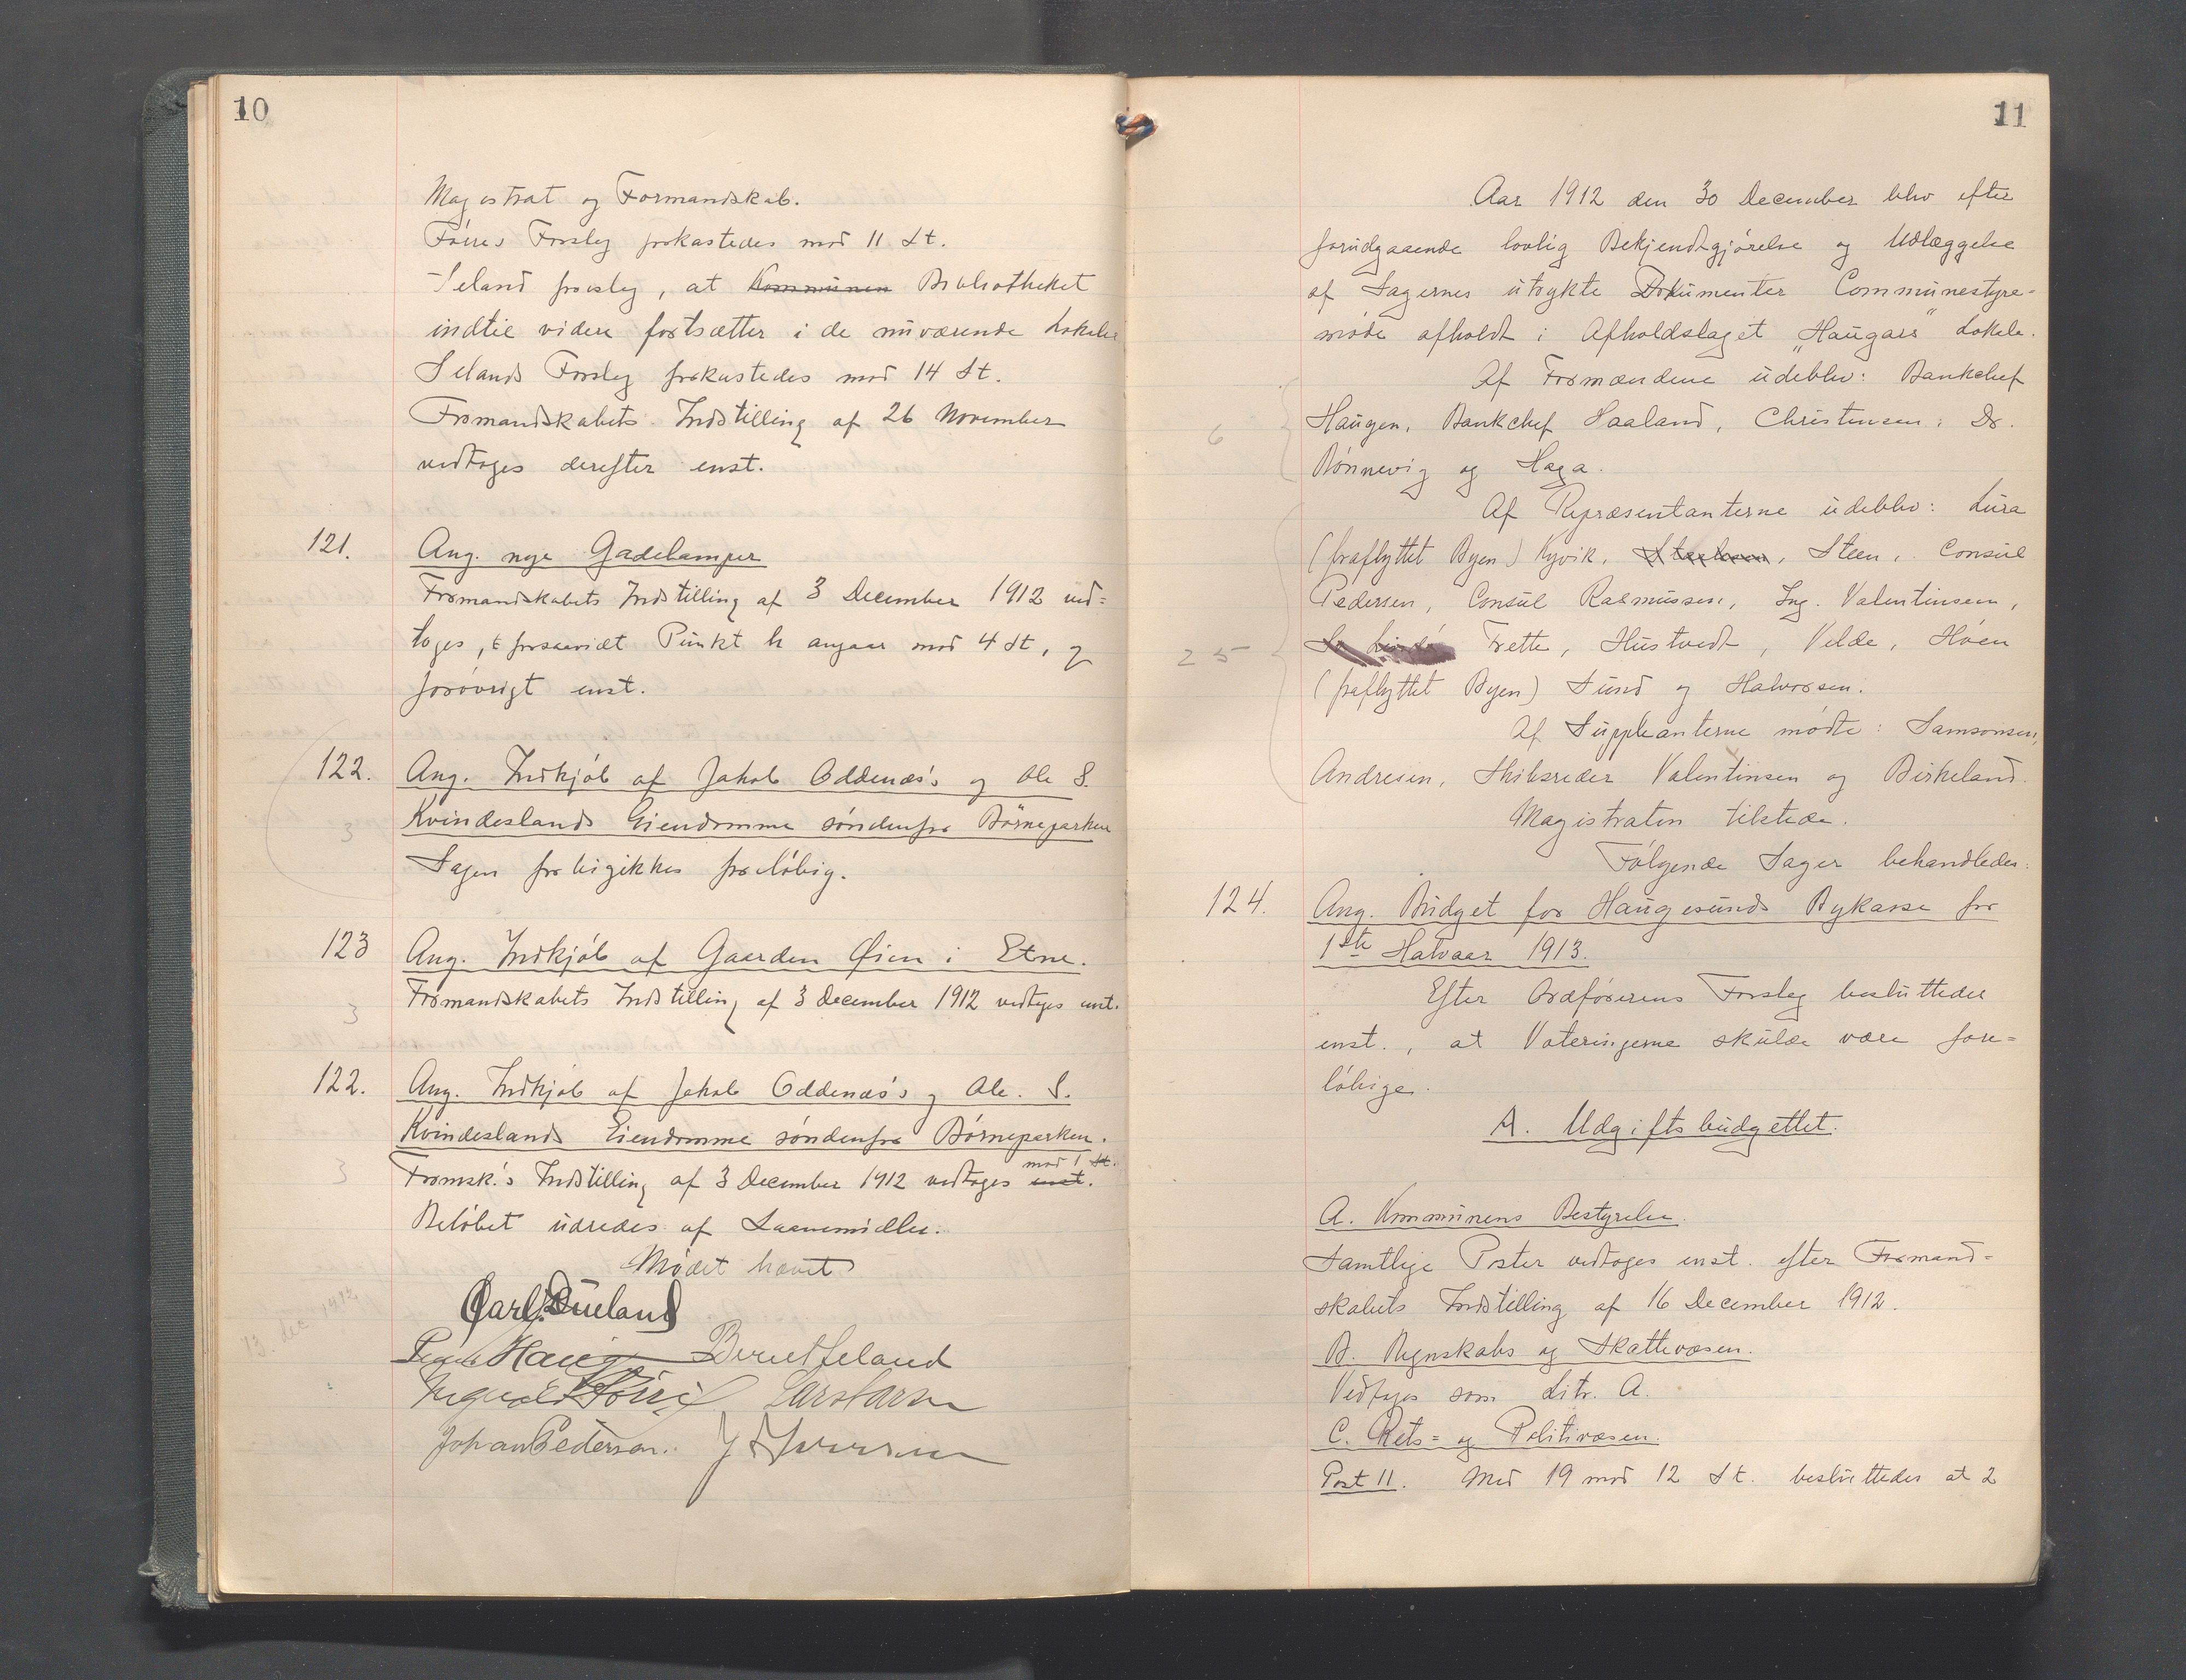 10
Magistrat og Formandskab.
Førres Forslag forkastedes mod 11 St.
Seland foreslog, at Kommunen Bibliotheket
indtil videre fortsætter i de nuværende Lokaler
Selands Forslag forkastedes mod 14 St.
Formandskabets Indstilling af 26 November
vedtoges derefter enst.
121. Ang. nye Gadelamper
Formandskabets Indstilling af 3 December 1912 ved=
toges, forsaavidt Punkt h angaar mod 4 St, og
forøvrigt enst.
122. Ang. Indkjøb af Jakob Oddenæs's og Ole S.
3 Kvindeslands Eiendomme søndenfor Børneparken
Sagen forbigikkes foreløbig.
123 Ang. Indkjøb af Gaarden Øien i Etne.
Formandskabets Indstilling af 3 December 1912 vedtoges enst.
3
122. Ang. Indkjøb af Jakob Oddenæs's og Ole. S.
Kvindeslands Eiendomme søndenfor Børneparken.
mod 1 St.
3 Formsk.'s Indstilling af 3 December 1912 vedtoges enst.
Beløbet udredes af Laanemidler.
Mødet hævet
Carl Dueland
13. dec 1912
Haug Bernt Seland
Lars Larsen
Johan Pedersen.
11
Aar 1912 den 30 December blev efter
forudgaaende lovlig Bekjendtgjørelse og Udlæggelse
af Sagernes utrykte Dokumenter Communestyre=
møde afholdt i Afholdslaget „Haugars" Lokale.
Af Formændene udeblev: Bankchef
6 Haugen, Bankchef Haaland, Christensen, Dr.
Rønnevig og Haga.
Af Repræsentanterne udeblev: Lura
(fraflyttet Byen) Kyvik, Steen, Consul
Pedersen, Consul Rasmussen, Ing. Valentinsen,
25 Frette, Hustvedt, Velde, Høen
(fraflyttet Byen) Sund og Halvorsen.
Af Suppleanterne mødte: Samsonsen,
Andresen, Skibsreder Valentinsen og Birkeland.
Magistraten tilstede.
Følgende Sager behandledes:
124. Ang. Budget for Haugesunds Bykasse for
1ste Halvaar 1913.
Efter Ordførerens Forslag besluttedes
enst., at Voteringerne skulde være fore=
løbige.
A. Udgiftsbudgettet.
A. Kommunens Bestyrelse.
Samtlige Poster vedtoges enst. efter Formand=
skabets Indstilling af 16 December 1912.
B. Regnskabs og Skattevæsen.
Vedtoges som Litr. A.
C. Rets= og Politivæsen.
Post 11. Med 19 mod 12 St. besluttedes at 2